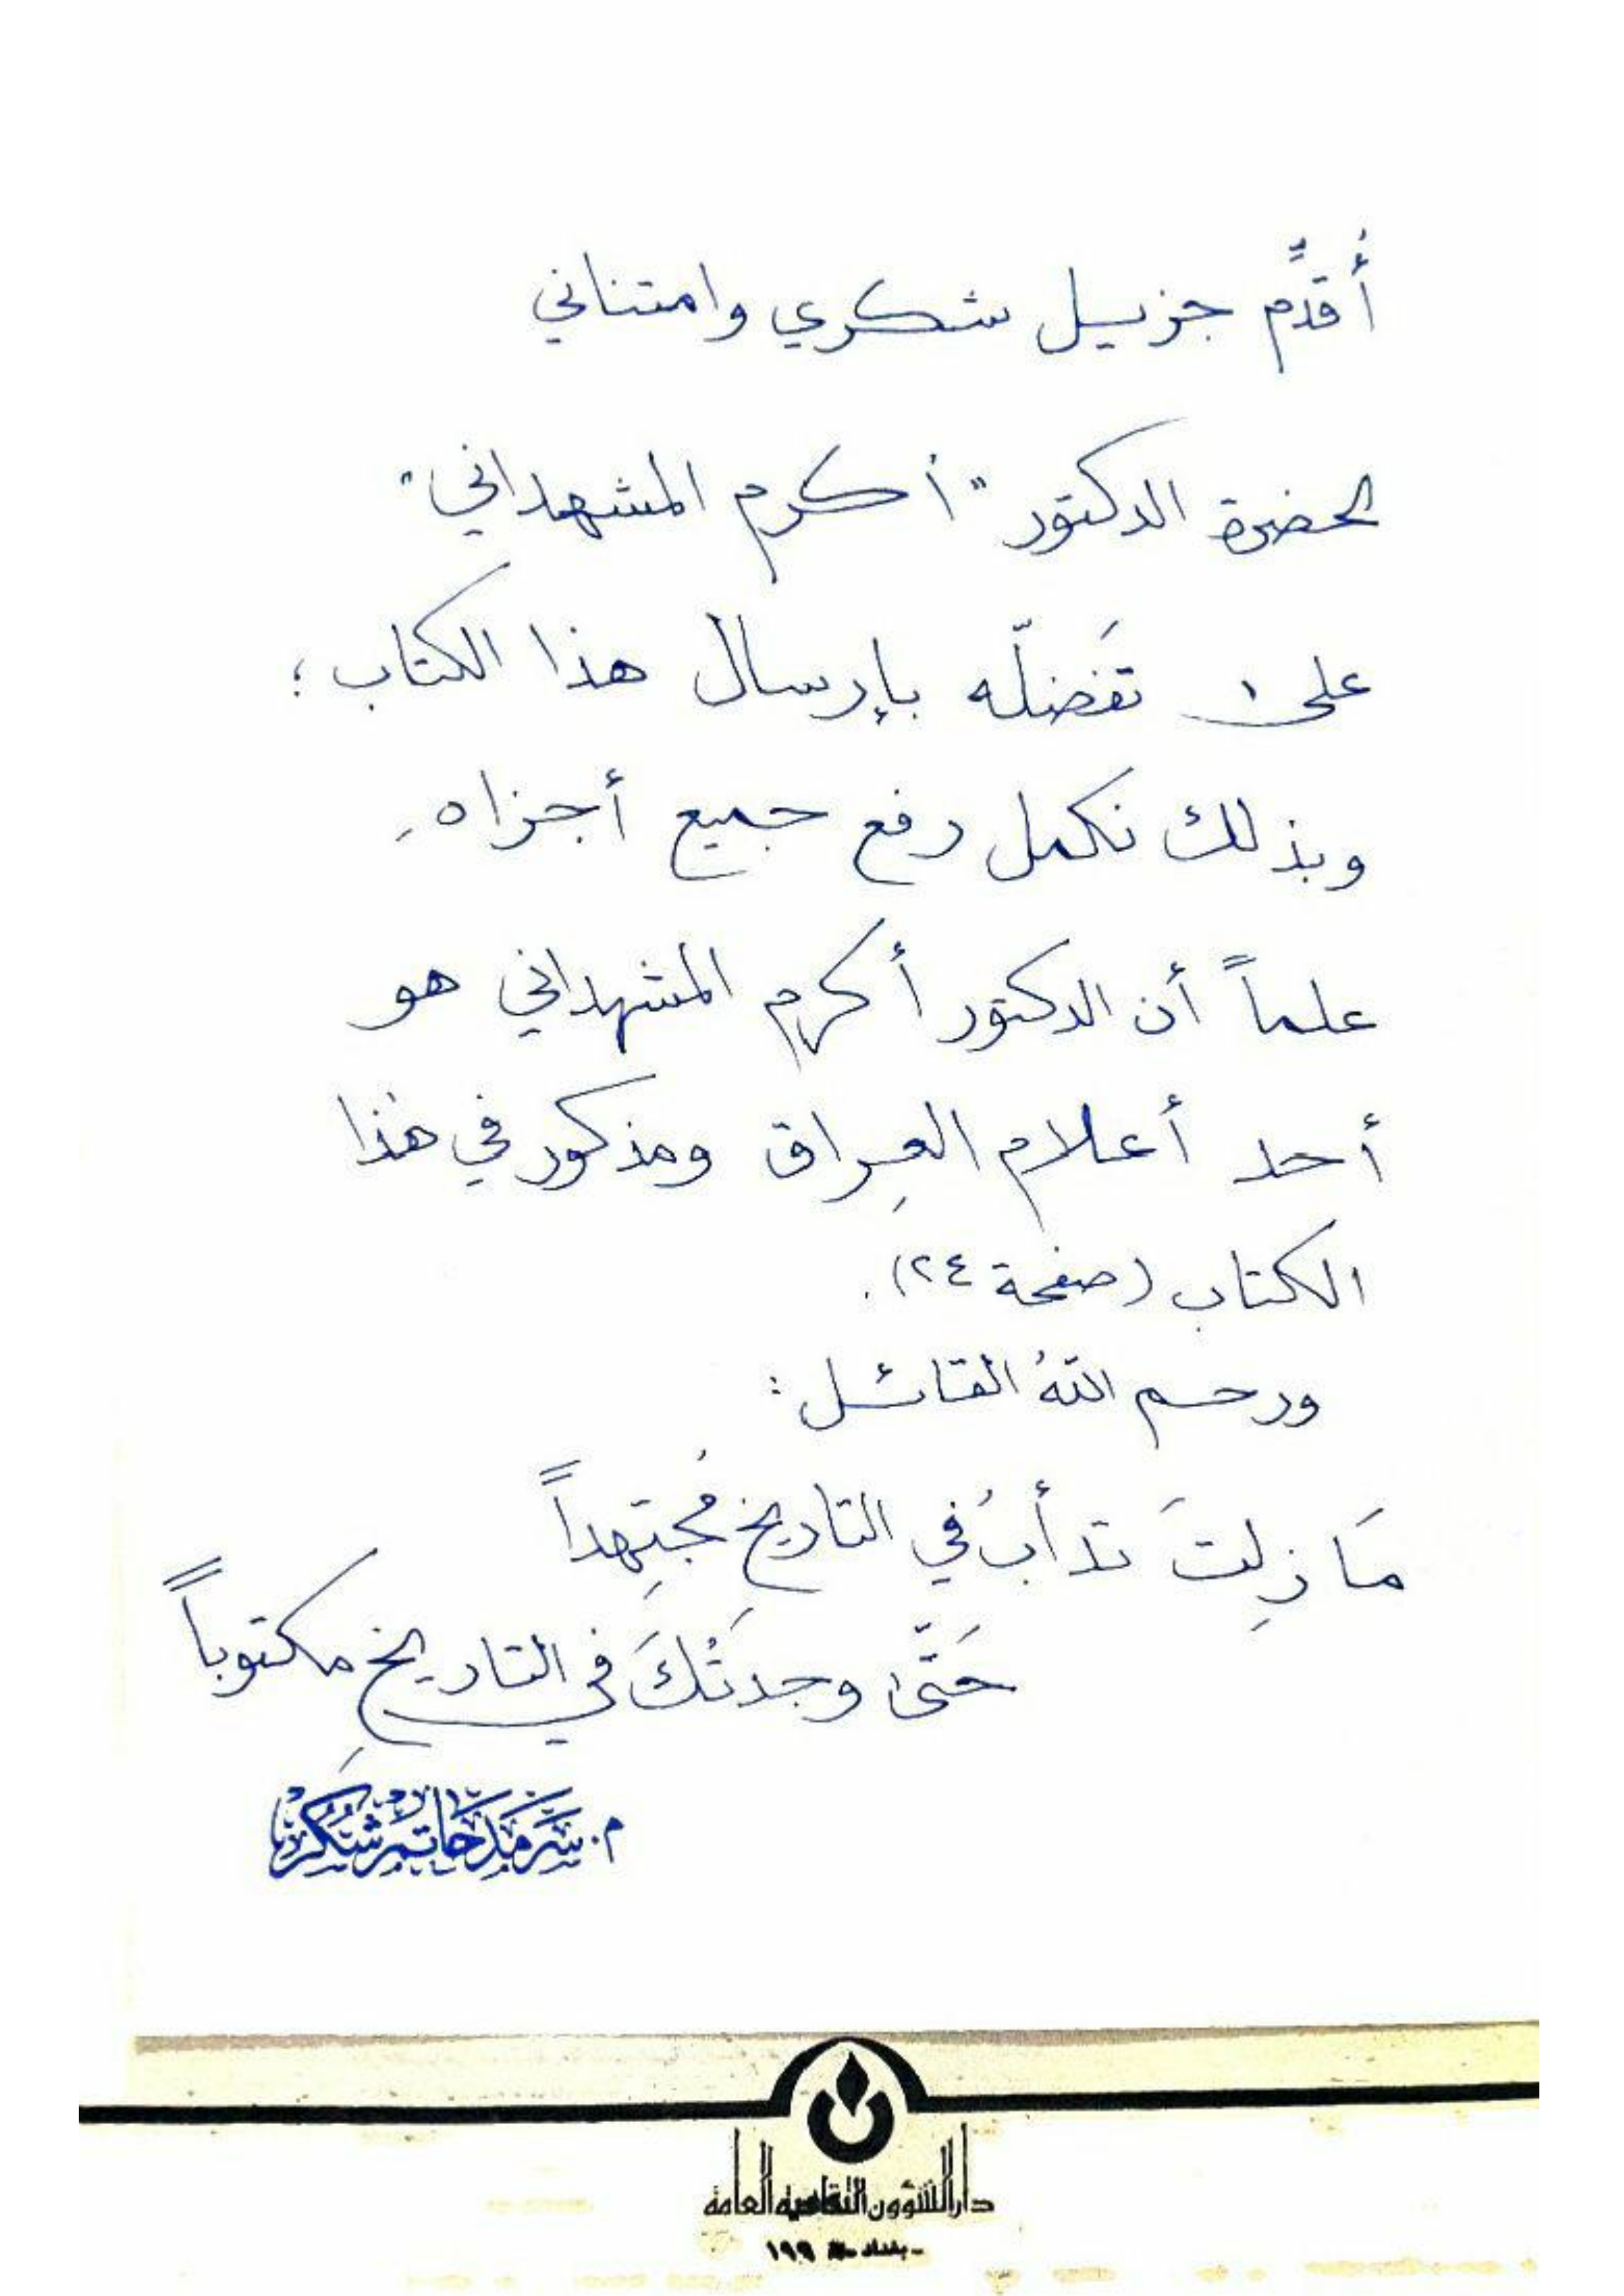 أُقدِّم جزيل شكري وامتناني
لحضرة الدكتور "أكرم المشهداني"
على تَفضلّه بإرسال هذا الكتاب؛
وبذلك نكمل رفع جميع أجزاه
علماً أن الدكتور أكرم المشهداني هو
أحد أعلام العِراق ومذكور في هذا
الكتاب (صفحة ٢٤).
ورحم اللهُ القائل:
مَا زِلتَ تدأبُ في التاريخِ مُجتِهداً
حَتّى وجدتُكَ في التاريخِ مكتوباً
م. سَرمَد حَاتم شُكر
دار الشؤون الثقافية العامة
- بغداد -